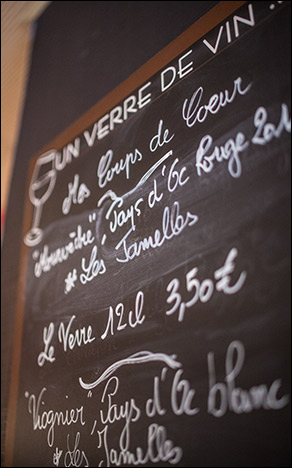 UN VERRE DE VIN ..
Mes Coups de Coeur
"Mourvèdre", Pays d'Oc Rouge 201
* Les Jamelles
Le Verre 12cl 3,50€
"Viognier", Pays d'Oc blanc
* Les Jamelles